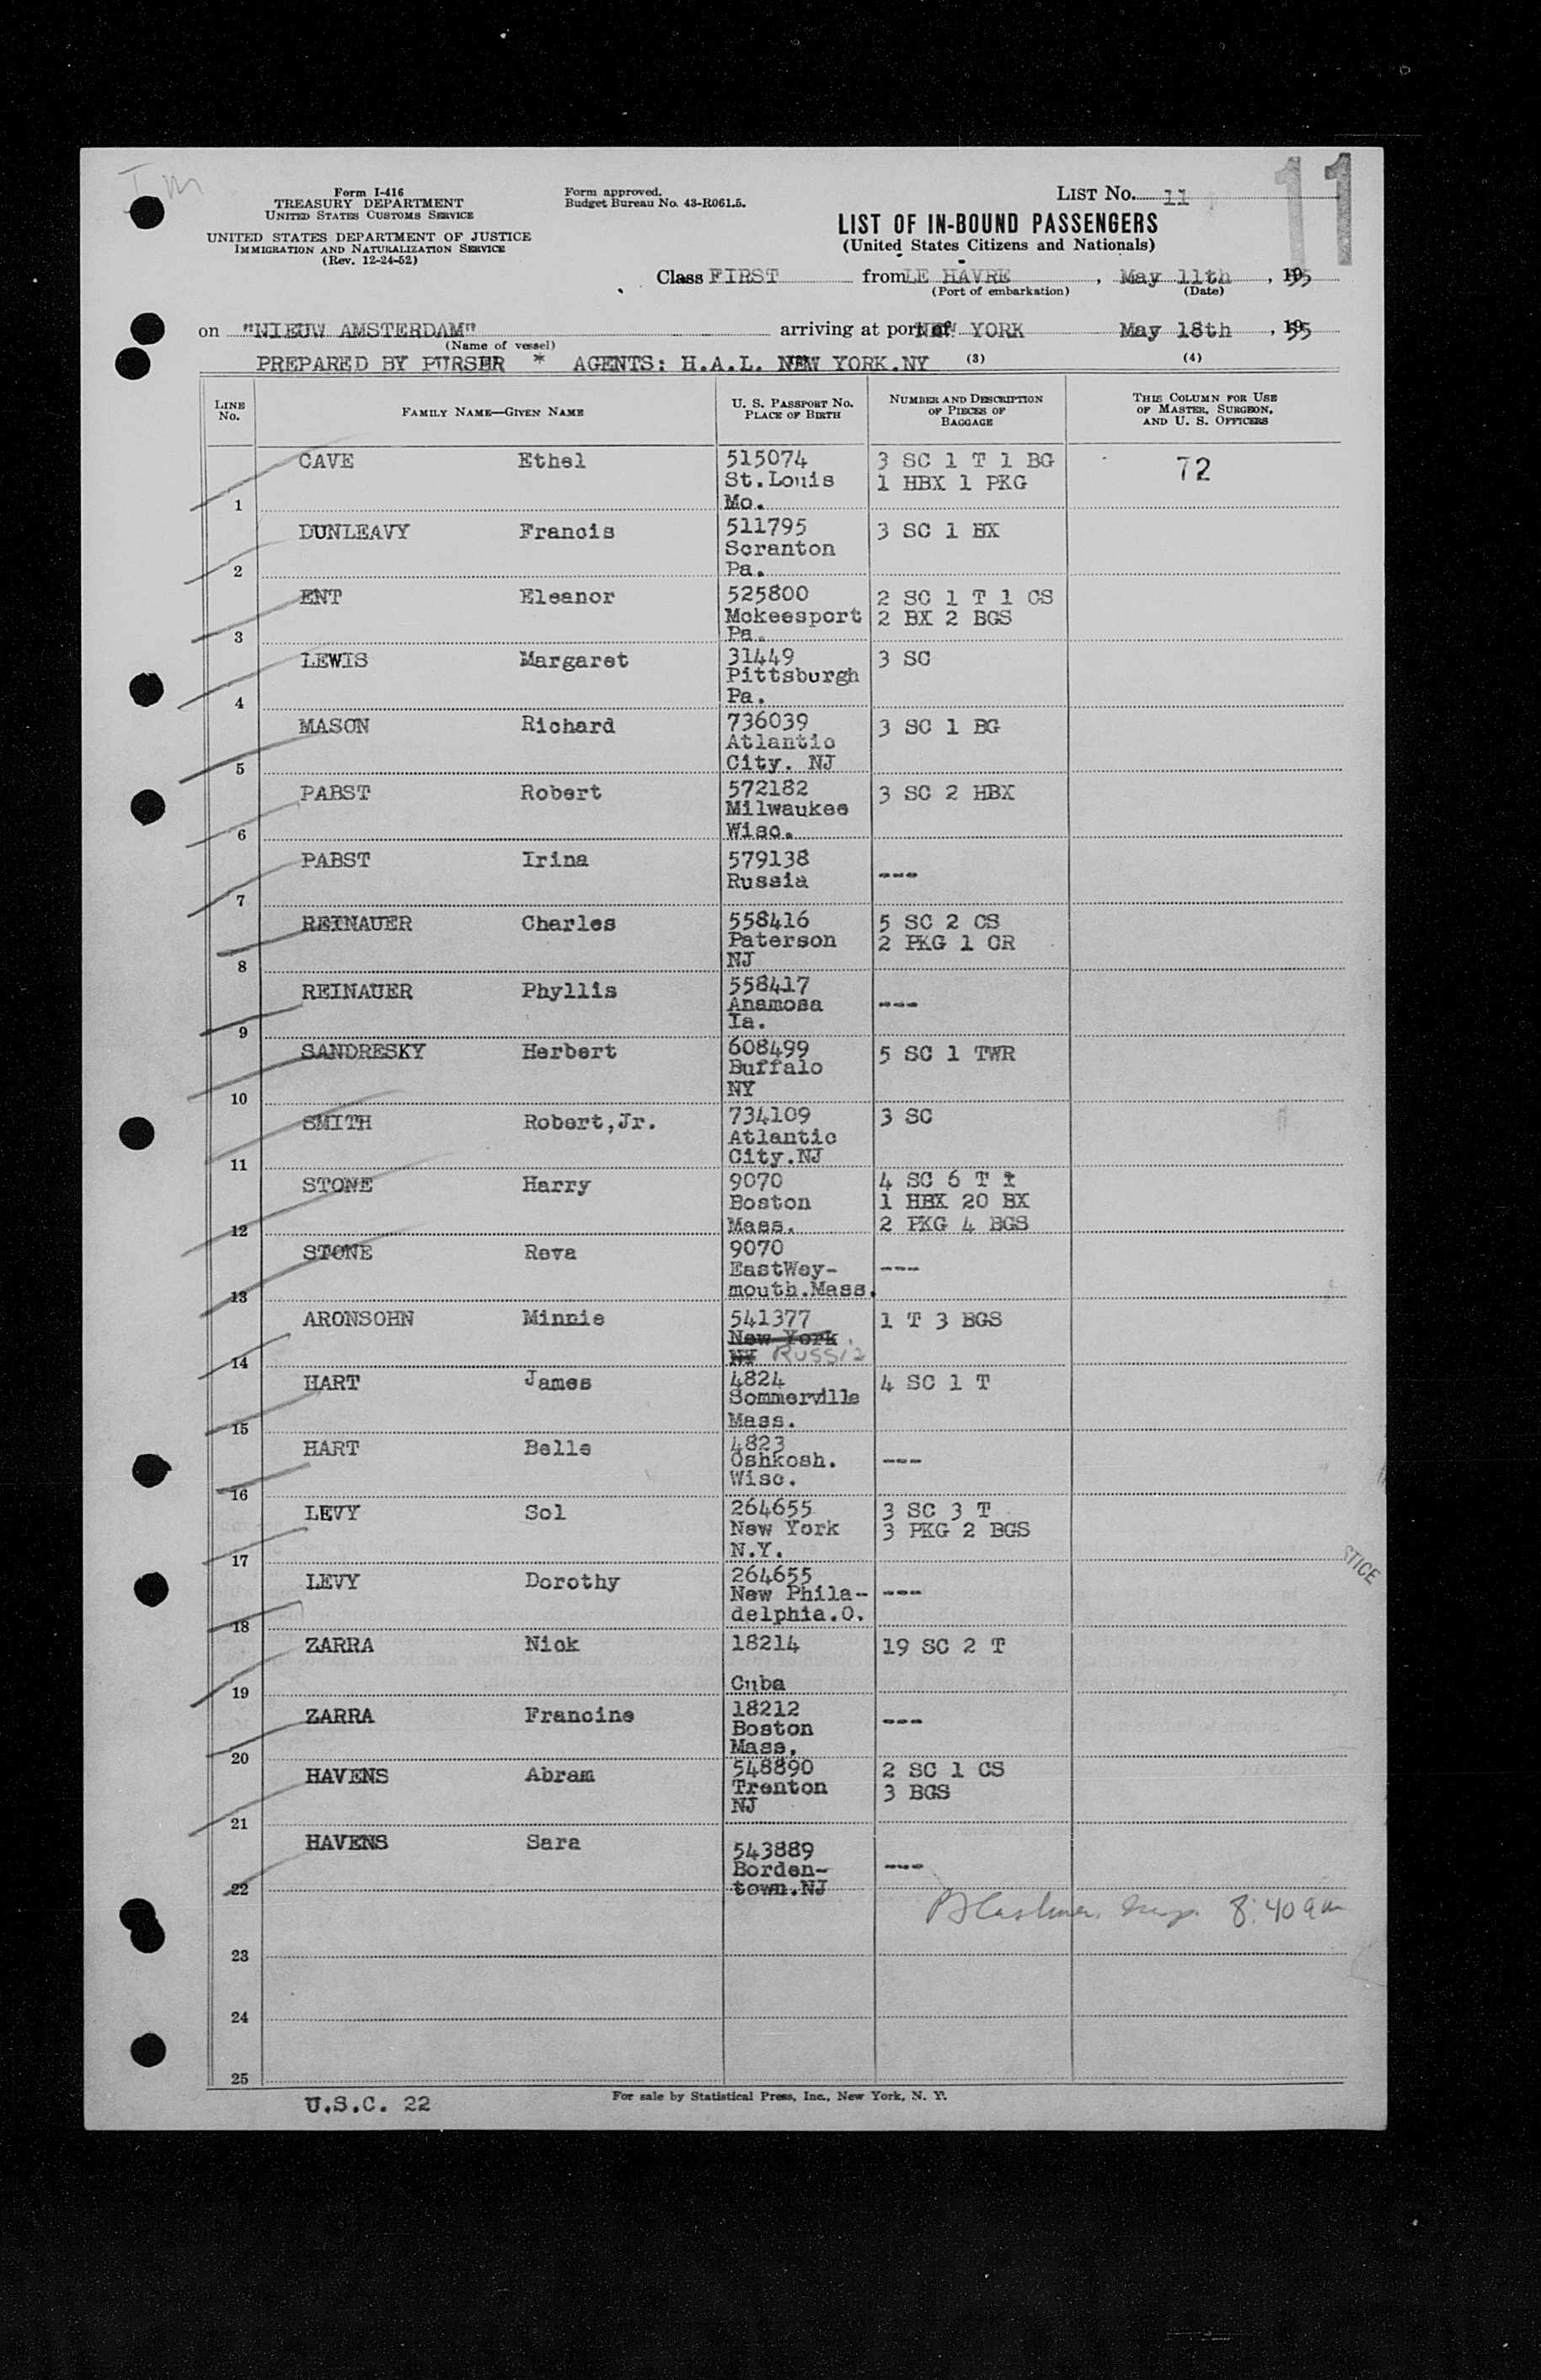 Form I-416
TREASURY DEPARTMENT
UNITED STATES CUSTOMS SERVICE
UNITED STATES DEPARTMENT OF JUSTICE
IMMIGRATION AND NATURALIZATION SERVICE
(Rev. 12-24-52)
Form approved.
Budget Bureau No. 43-R061.5.
LIST NO. 11
11
LIST OF IN-BOUND PASSENGERS
(United States Citizens and Nationals)
Class FIRST from LE HAVRE, May 11th, 1955
(Port of embarkation) (Date)
on "NIEUW AMSTERDAM" arriving at port of NEW YORK May 18th, 1955
(Name of vessel)
PREPARED BY PURSER * AGENTS: H.A.L. NEW YORK.NY (3) (4)
LINE No. FAMILY NAME—GIVEN NAME U. S. PASSPORT No. PLACE OF BIRTH NUMBER AND DESCRIPTION OF PIECES OF BAGGAGE THIS COLUMN FOR USE OF MASTER, SURGEON, AND U. S. OFFICERS
CAVE Ethel 515074 3 SC 1 T 1 BG 72
St.Louis 1 HBX 1 PKG
1 Mo.
DUNLEAVY Francis 511795 3 SC 1 BX
Scranton
2 Pa.
ENT Eleanor 525800 2 SC 1 T 1 CS
Mckeesport 2 BX 2 BGS
3 Pa.
LEWIS Margaret 31449 3 SC
Pittsburgh
4 Pa.
MASON Richard 736039 3 SC 1 BG
Atlantic
5 City. NJ
PABST Robert 572182 3 SC 2 HBX
Milwaukee
6 Wisc.
PABST Irina 579138
Russia ---
7
REINAUER Charles 558416 5 SC 2 CS
Paterson 2 PKG 1 CR
8 NJ
REINAUER Phyllis 558417
Anamosa ---
9 Ia.
SANDRESKY Herbert 608499 5 SC 1 TWR
Buffalo
10 NY
SMITH Robert,Jr. 734109 3 SC
Atlantic
11 City.NJ
STONE Harry 9070 4 SC 6 T
Boston 1 HBX 20 BX
12 Mass. 2 PKG 4 BGS
STONE Reva 9070
EastWey- ---
13 mouth.Mass.
ARONSOHN Minnie 541377 1 T 3 BGS
New York
14 NY Russia
HART James 4824 4 SC 1 T
Sommerville
15 Mass.
HART Belle 4823
Oshkosh. ---
16 Wisc.
LEVY Sol 264655 3 SC 3 T
New York 3 PKG 2 BGS
17 N.Y.
LEVY Dorothy 264655
New Phila- ---
18 delphia.O.
ZARRA Nick 18214 19 SC 2 T
19 Cuba
ZARRA Francine 18212
Boston ---
20 Mass.
HAVENS Abram 548890 2 SC 1 CS
Trenton 3 BGS
NJ
21
HAVENS Sara 543889
Borden- ---
22 town.NJ
8:40 am
23
24
25
U.S.C. 22
For sale by Statistical Press, Inc., New York, N. Y.
STICE